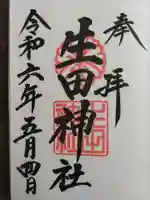 奉拝
生田神社
令和六年五月四日